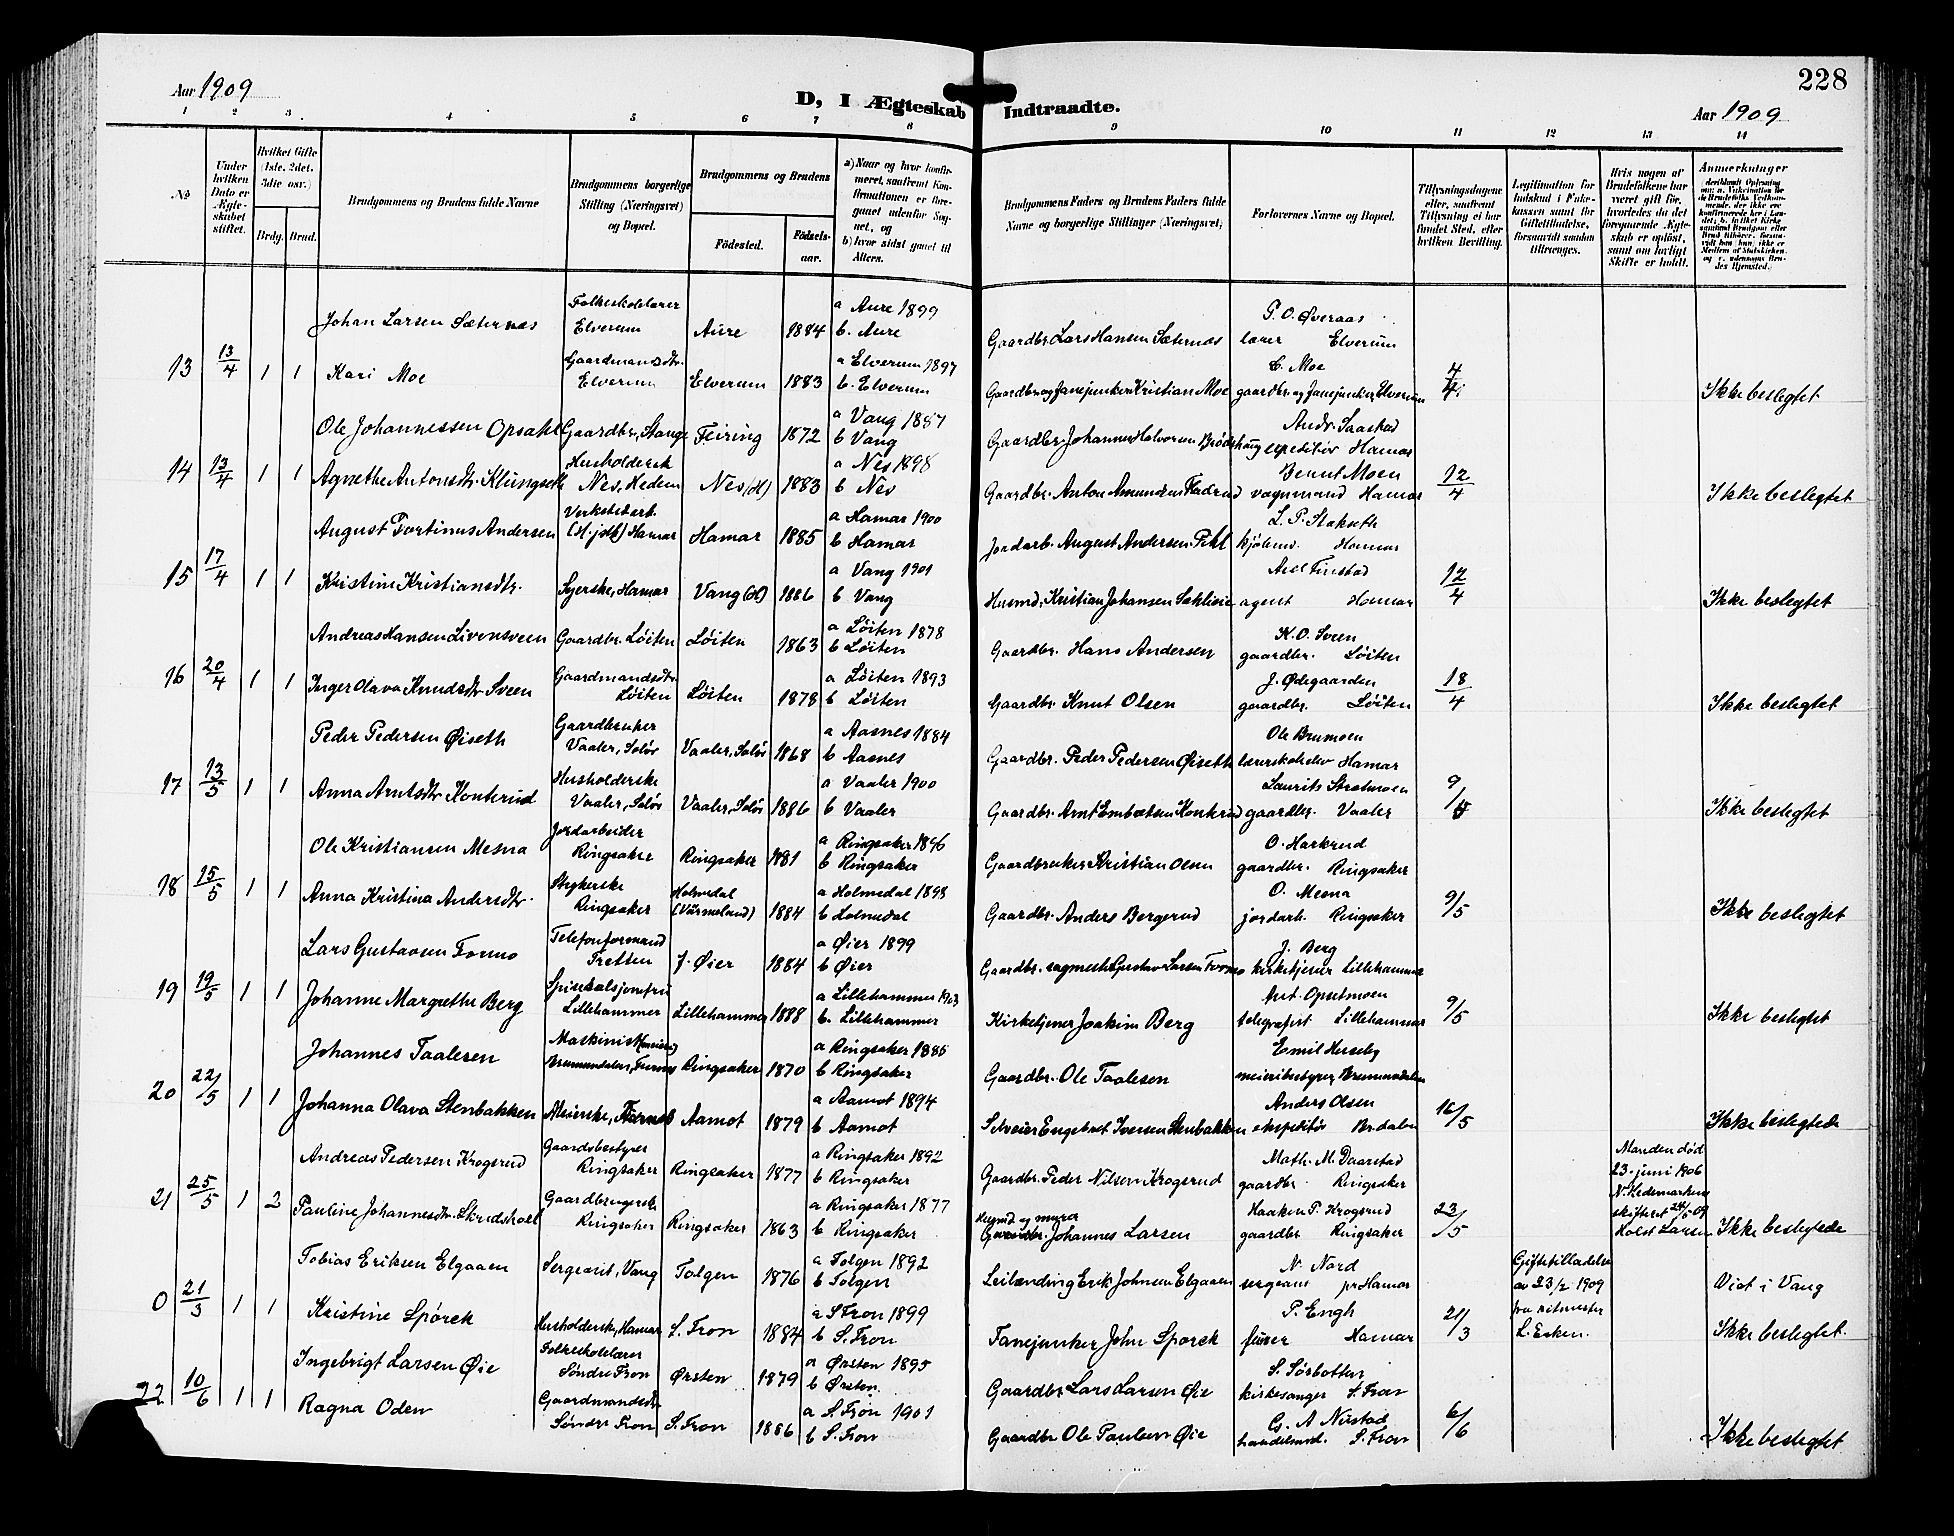 228
Aar 1909
D, I Ægteskab Indtraadte.
Aar 1909
1 2 3 4 5 6 7 8 9 10 11 12 13 14
No
Under hvilken Dato er Ægteskabet stiftet.
Hvilket Gifte (1ste, 2det, 3die osv.)
Brdg. Brud.
Brudgommens og Brudens fulde Navne
Brudgommens borgerlige Stilling (Næringsvei) og Bopæl.
Brudgommens og Brudens
Fødested. Fødsels-aar.
a) Naar og hvor konfirmeret, saafremt Konfirmationen er foregaaet udenfor Sognet, og
b) hvor sidst gaaet til Alters.
Brudgommens Faders og Brudens Faders fulde Navne og borgerlige Stillinger (Næringsvei)
Forlovernes Navne og Bopæl.
Tillysningsdagene eller, saafremt Tillysning ei har fundet Sted, efter hvilken Bevilling.
Legitimation for Indskud i Enkekassen samt for Giftetilladelse, forsaavidt saadan tiltrænges.
Hvis nogen af Brudefolkene har været gift før, hvorledes da det foregaaende Ægteskab er opløst, samt om lovligt Skifte er holdt.
Anmerkninger
Johan Larsen Sæternes Folkeskolelærer Elverum Aure 1884 a Aure 1899 b. Aure Gaardbr Lars Hansen Sæternes P. O. Øveraas lærer Elverum
13 13/4 1 1 Kari Moe Gaardmandsdtr. Elverum Elverum 1883 a Elverum 1897 b. Elverum Gaardbr og fanejunker Kristian Moe C. Moe gaardbr. og fanejunker Elverum 4/4 Ikke beslegtet
Ole Johannessen Opsahl Gaardbr, Stange Feiring 1872 a Vang 1887 b Vang Gaardbr Johannes Halvorsen Andr. Saastad expeditør Hamar
14 13/4 1 1 Agnethe Antonsdtr. Klungseth Husholdersk Nes, Hedem Nes (H) 1883 a Nes 1898 b Nes Gaardbr. Anton Amundsen Bernt Moen vognmand Hamar 12/4 Ikke beslegtet
August Fortinus Andersen Verkstedarb. Hamar Hamar 1885 a Hamar 1900 b Hamar Jordarb. August Andersen L. P. Stakseth kjøbmd. Hamar
15 17/4 1 1 Kristine Kristiansdtr. Syerske, Hamar Vang (H) 1886 a Vang 1901 b Vang Husmd. Kristian Johansen Axel Finstad agent Hamar 12/4 Ikke beslegtet
Andreas Hansen Livensveen Gaardbr. Løiten Løiten 1863 a Løiten 1878 b Løiten Gaardbr. Hans Andersen K. O. Sveen gaardbr. Løiten
16 20/4 1 1 Inger Olava Knudsdtr Sveen Gaardmandsdtr Løiten Løiten 1878 a Løiten 1893 b Løiten Gaardbr Knut Olsen J. Ødegaarden gaardbr. Løiten 18/4 Ikke beslegtet
Peder Pedersen Øiseth Gaardbruker Vaaler, Solør Vaaler, Solør 1868 a Aasnes 1884 b Aasnes Gaardbr. Peder Pedersen Øiseth Ole Brumoen lærerskoleelev Hamar
17 13/5 1 1 Anna Arntsdtr Konterud Husholderske Vaaler, Solør Vaaler, Solør 1886 a Vaaler 1900 b Vaaler Gaardbr. Arnt Embretsen Konterud Laurits Stratmoen gaardbr. Vaaler 9/5 Ikke beslegtet
Ole Kristiansen Mesna Jordarbeider Ringsaker Ringsaker 1881 a Ringsaker 1896 b Ringsaker Gaardbruker Kristian Olsen O. Harkrud gaardbr. Ringsaker
18 15/5 1 1 Anna Kristina Andersdtr. Strykerske Ringsaker Holmedal (Värmeland) 1884 a Holmedal 1898 b Holmedal Gaardbr. Anders Bergerud O. Mesna jordarb. Ringsaker 9/5 Ikke beslegtet
Lars Gustavsen Formo Telefonformand Tretten Ø. Øier 1884 a Øier 1899 b Øier Gaardbr. sagmester Gustav Larsen Formo J. Berg kirketjener Lillehammer
19 19/5 1 1 Johanne Margrethe Berg Lillehammer Lillehammer 1888 a Lillehammer 1903 b. Lillehammer Kirketjener Joakim Berg Ant. Opsetmoen telegrafist Lillehammer 9/5 Ikke beslegtet
Johannes Taalesen Maskinist Brumunddalen, Furnes Ringsaker 1870 a Ringsaker 1885 b Ringsaker Gaardbr. Ole Taalesen Emil Herseby meieribestyrer, Brummundalen
20 22/5 1 1 Johanna Olava Stenbakken Meierske, Furnes Aamot 1879 a Aamot 1894 b Aamot Selveier Engebret Iversen Stenbakken Anders Olsen ekspeditør Br.dalen 16/5 Ikke beslegtede
Andreas Pedersen Krogsrud Gaardsbestyrer Ringsaker Ringsaker 1877 a Ringsaker 1892 b Ringsaker Gaardbr. Peder Nilsen Krogsrud Math. M. Daarstad gaardbr. Ringsaker
21 25/5 1 2 Pauline Johannesdtr. Skredshol Gaardbrugerske Ringsaker Ringsaker 1863 a Ringsaker 1877 b Ringsaker Husmd og murer Johannes Larsen Haaken P. Krogsrud gaardbr Ringsaker 23/5 Manden død 23. juni 1906 N. Hedemarkens skifteret 24/5 09 Holst Larsen Ikke beslegtede
Tobias Eriksen Elgaaen Sergeant, Vang Tolgen 1876 a Tolgen 1892 b Tolgen Leilænding Erik Johnsen Elgaaen N. Nord sergeant pr Hamar Giftetilladelse av 23/2 1909 fra ritmester L. Esken. Viet i Vang
0 21/3 1 1 Kristine Spørck Husholdersk, Hamar S. Fron 1884 a S Fron 1899 b S. Fron Fanejunker John Spørck P. Engh furer Hamar 21/3 Ikke beslegtet.
Ingebrigt Larsen Øie Folkeskolelærer Søndre Fron Ørsten 1879 a Ørsten 1895 b Ørsten. Gaardbr Lars Larsen Øie S. Sørbotten kirkesanger S. Fron
22 10/6 1 1 Ragna Oden Gaardmandsdtr Søndre Fron S. Fron 1886 a S. Fron 1901 b S. Fron Gaardbr Ole Paulsen Øie G. A Nustad handelsmd. S. Fron 6/6 Ikke beslegtet